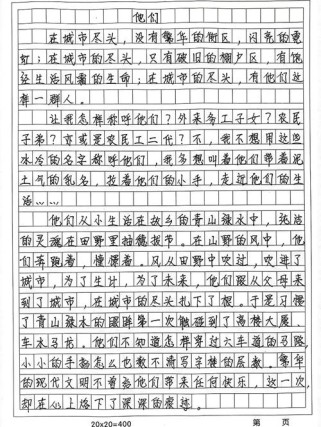 他们
在城市尽头，没有繁华的街区，闪亮的霓
虹；在城市的尽头，只有破旧的棚户区，有饱
经生活风霜的生命；在城市的尽头，有他们这
样一群人。
让我怎样称呼他们？外来务工子女？农民
子弟？亦或是农民工二代？不，我不想用这些
冰冷的名字称呼他们，我多想叫着他们带着泥
土气的乳名，拉着他们的小手，走近他们的生
活……
他们从小生活在故乡的青山绿水中，纯洁
的灵魂在田野里抽穗拔节。在山野的风中，他
们奔跑着，憧憬着。风从田野中吹过，吹进了
城市，为了生计，为了未来，他们跟从父母来
到了城市，在城市的尽头扎下了根。于是习惯
了青山绿水的眼眸第一次触碰到了高楼大厦、
车水马龙。他们不知道怎样穿过六车道的马路，
小小的手指怎么也数不清写字楼的层数。繁华
的现代文明不曾为他们带来任何快乐，这一次，
却在心上烙下了深深的痕迹。
20×20=400
第 页